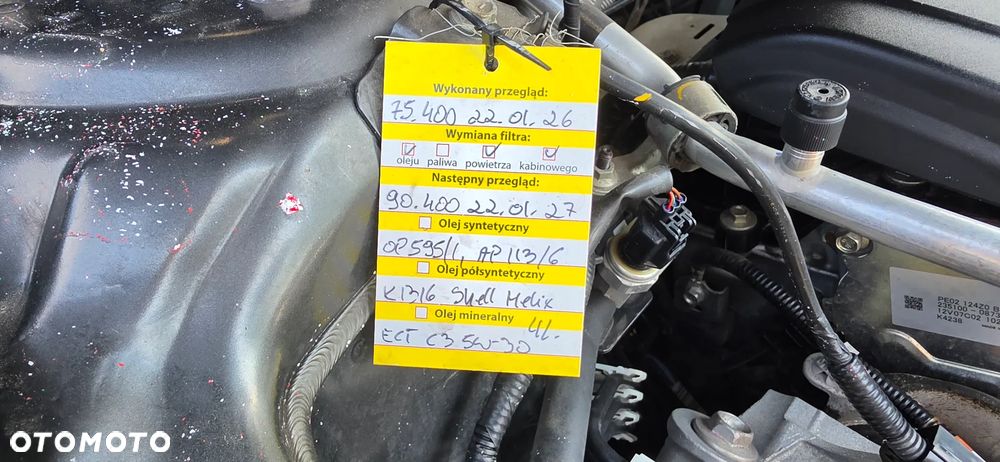 Wykonany przegląd:
75.400 22.01.26
Wymiana filtra:
oleju paliwa powietrza kabinowego
Następny przegląd:
90.400 22.01.27
Olej syntetyczny
OP595/1, AP113/6
Olej półsyntetyczny
K1316 Shell Helix
Olej mineralny 4L-
ECT C3 5W-30
PE02 124Z0
235100 - 087
12V07C02 102
K4238
OTOMOTO